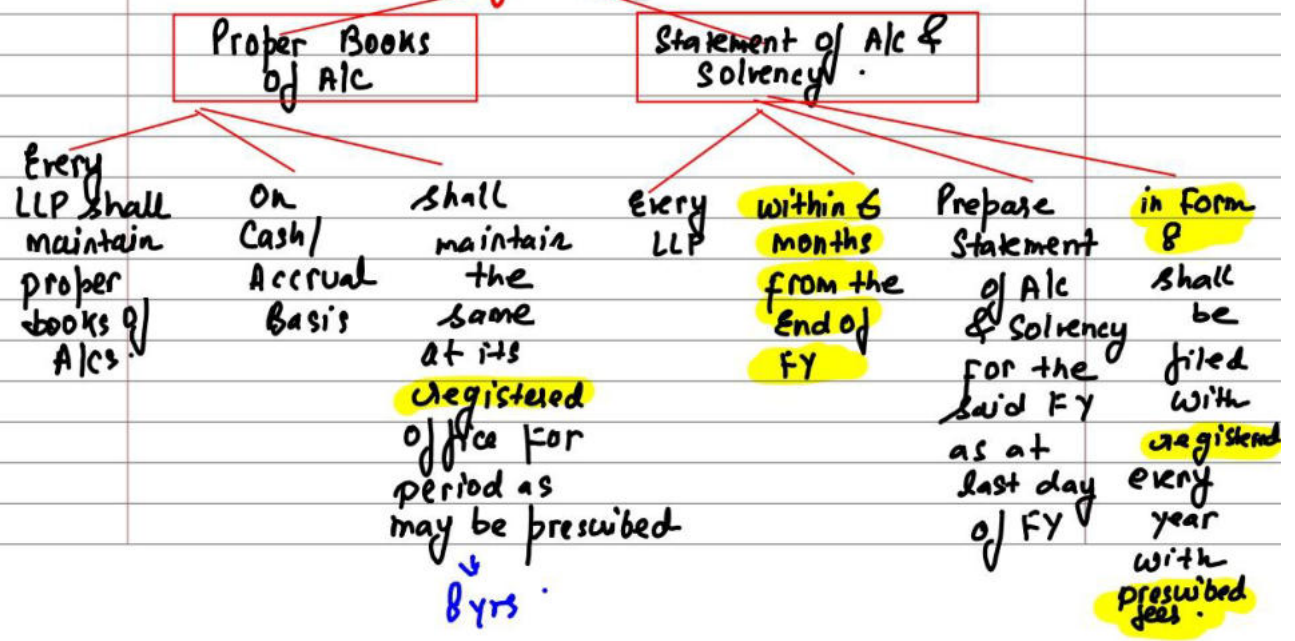 Proper Books
of A/c
Statement of A/c &
Solvency.
Every
LLP shall
maintain
proper
books of
A/cs.
On
Cash/
Accrual
Basis
shall
maintain
the
same
at its
registered
office for
period as
may be prescribed
8 yrs.
Every
LLP
within 6
months
from the
End of
FY
Prepare
Statement
of A/c
& Solvency
For the
said FY
as at
last day
of FY
in Form
8
shall
be
filed
with
registered
every
year
with
prescribed
fees.